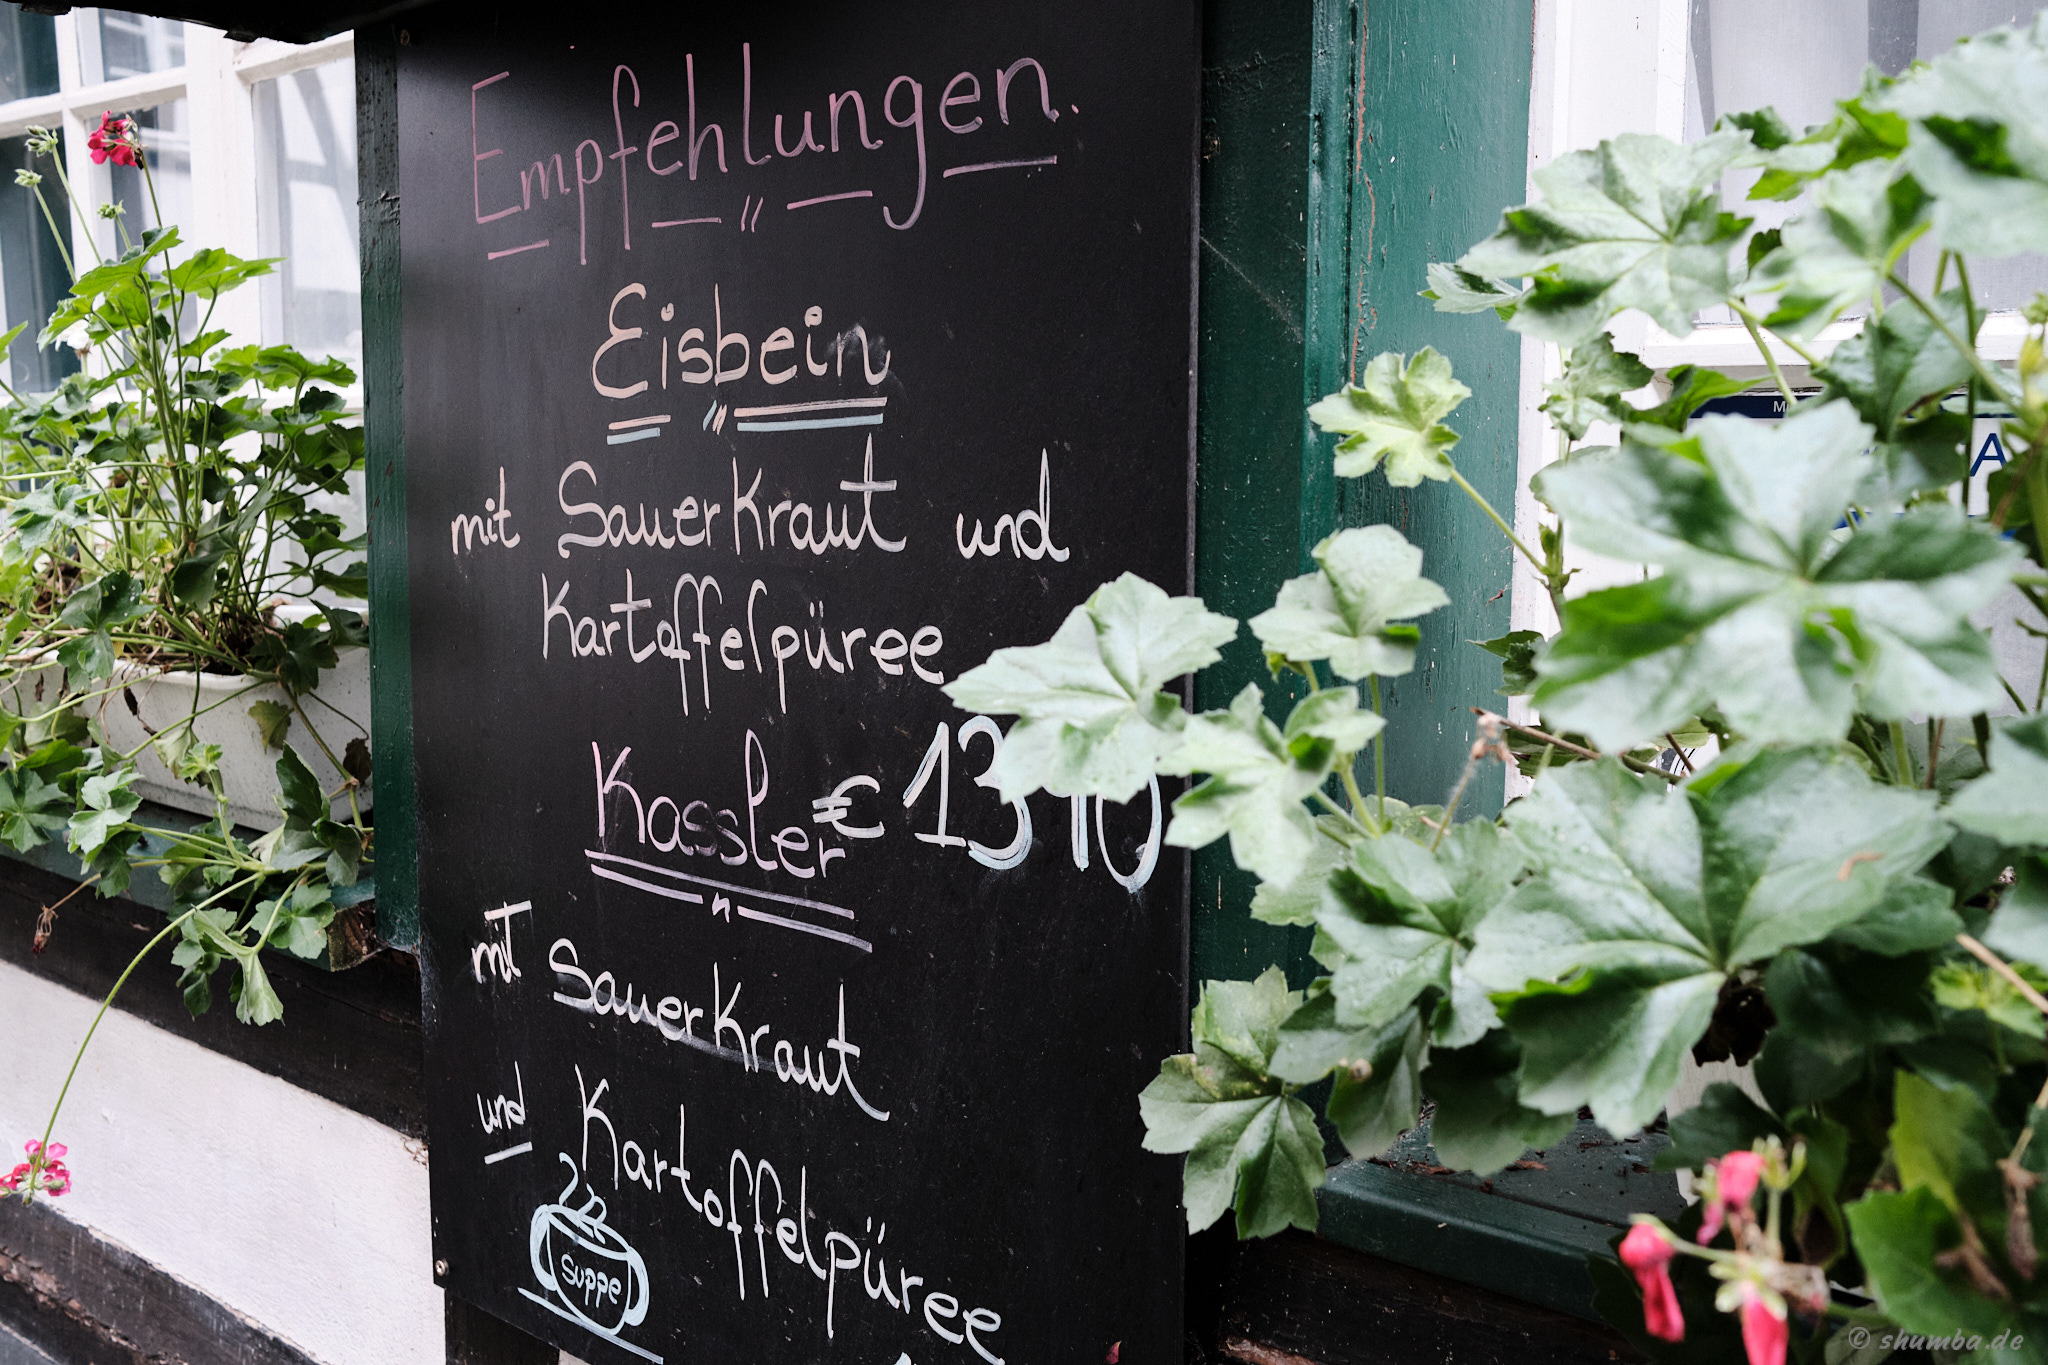 Empfehlungen.
Eisbein
mit Sauerkraut und
Kartoffelpüree
€
Kassler
mit Sauerkraut
und Kartoffelpüree
Suppe
A
© shumba.de